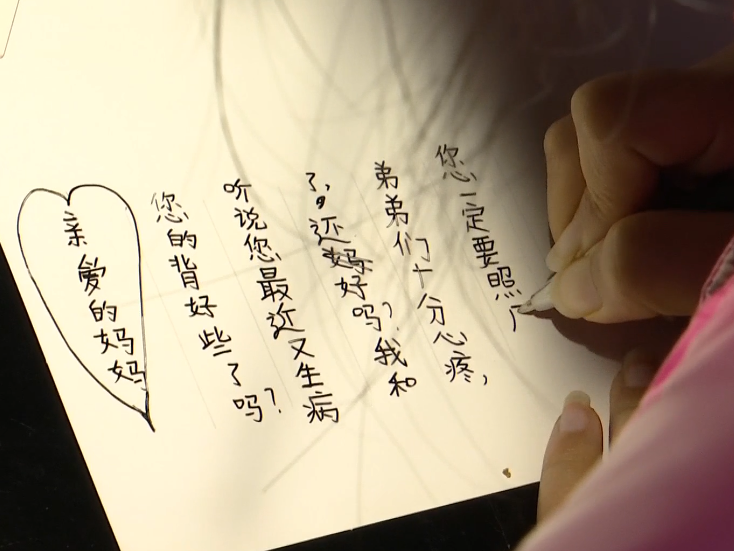 亲爱的妈妈
您的背好些了吗?
听说您最近又生病
了,还好吗?我和
弟弟们十分心疼,
您一定要照